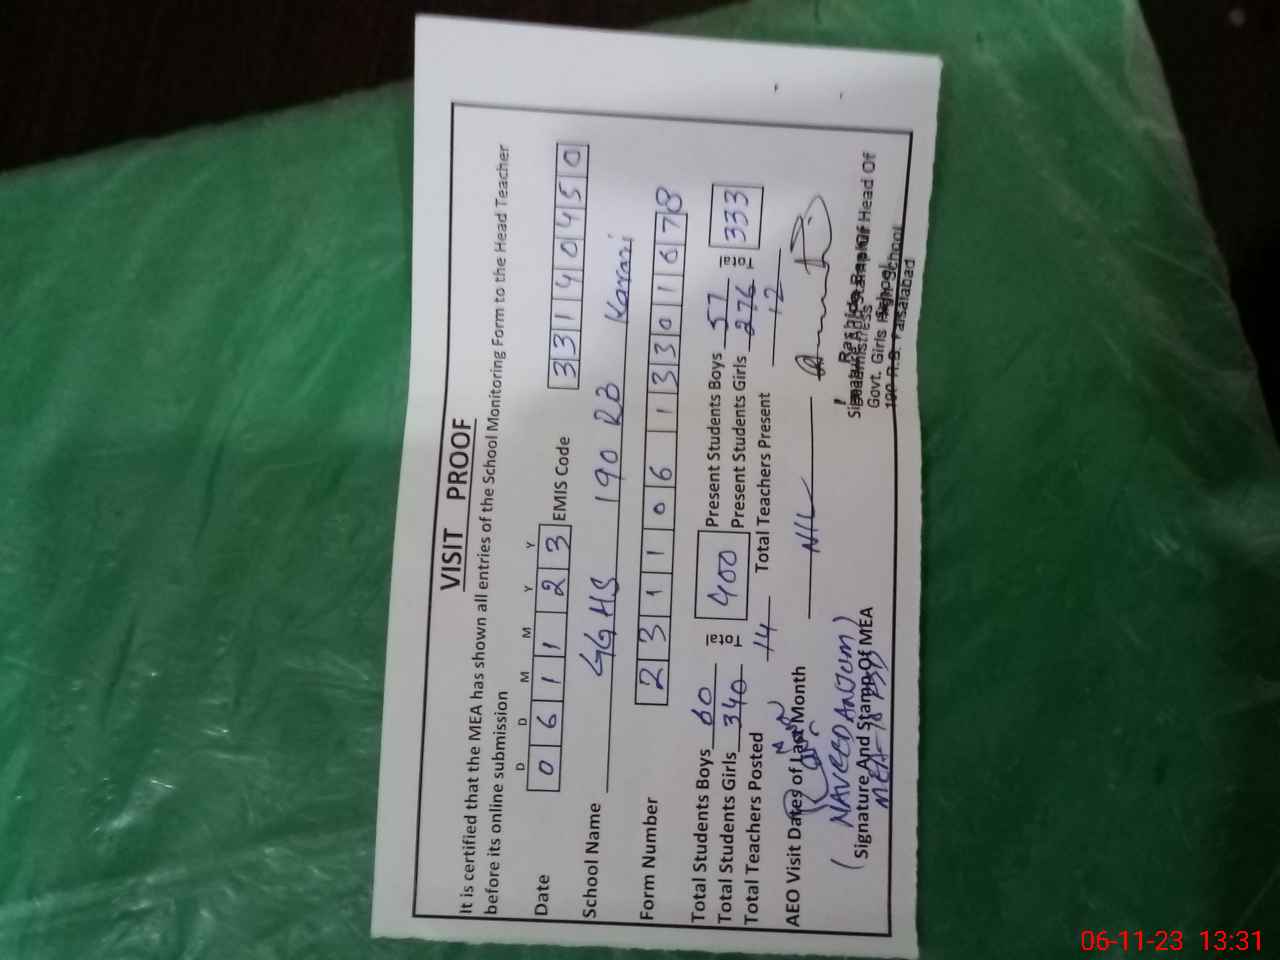 VISIT PROOF
It is certified that the MEA has shown all entries of the School Monitoring Form to the Head Teacher
before its online submission
D D M M Y Y
Date 0 6 1 1 2 3 EMIS Code 3 3 1 4 0 4 5 0
School Name GGHS 190 RB Karari
Form Number 2 3 1 1 0 6 1 3 3 0 1 6 7 8
Total Students Boys 60 Total 400 Present Students Boys 57 Total 333
Total Students Girls 340 Present Students Girls 276
Total Teachers Posted 14 Total Teachers Present 12
AEO Visit Dates of Last Month NIL
(NAVEED ANJUM)
Signature And Stamp Of MEA Signature And Stamp Of Head Of
School
MEA-78 FSD
Headmistress
Govt. Girls High School
190 R.B. Faisalabad
06-11-23 13:31